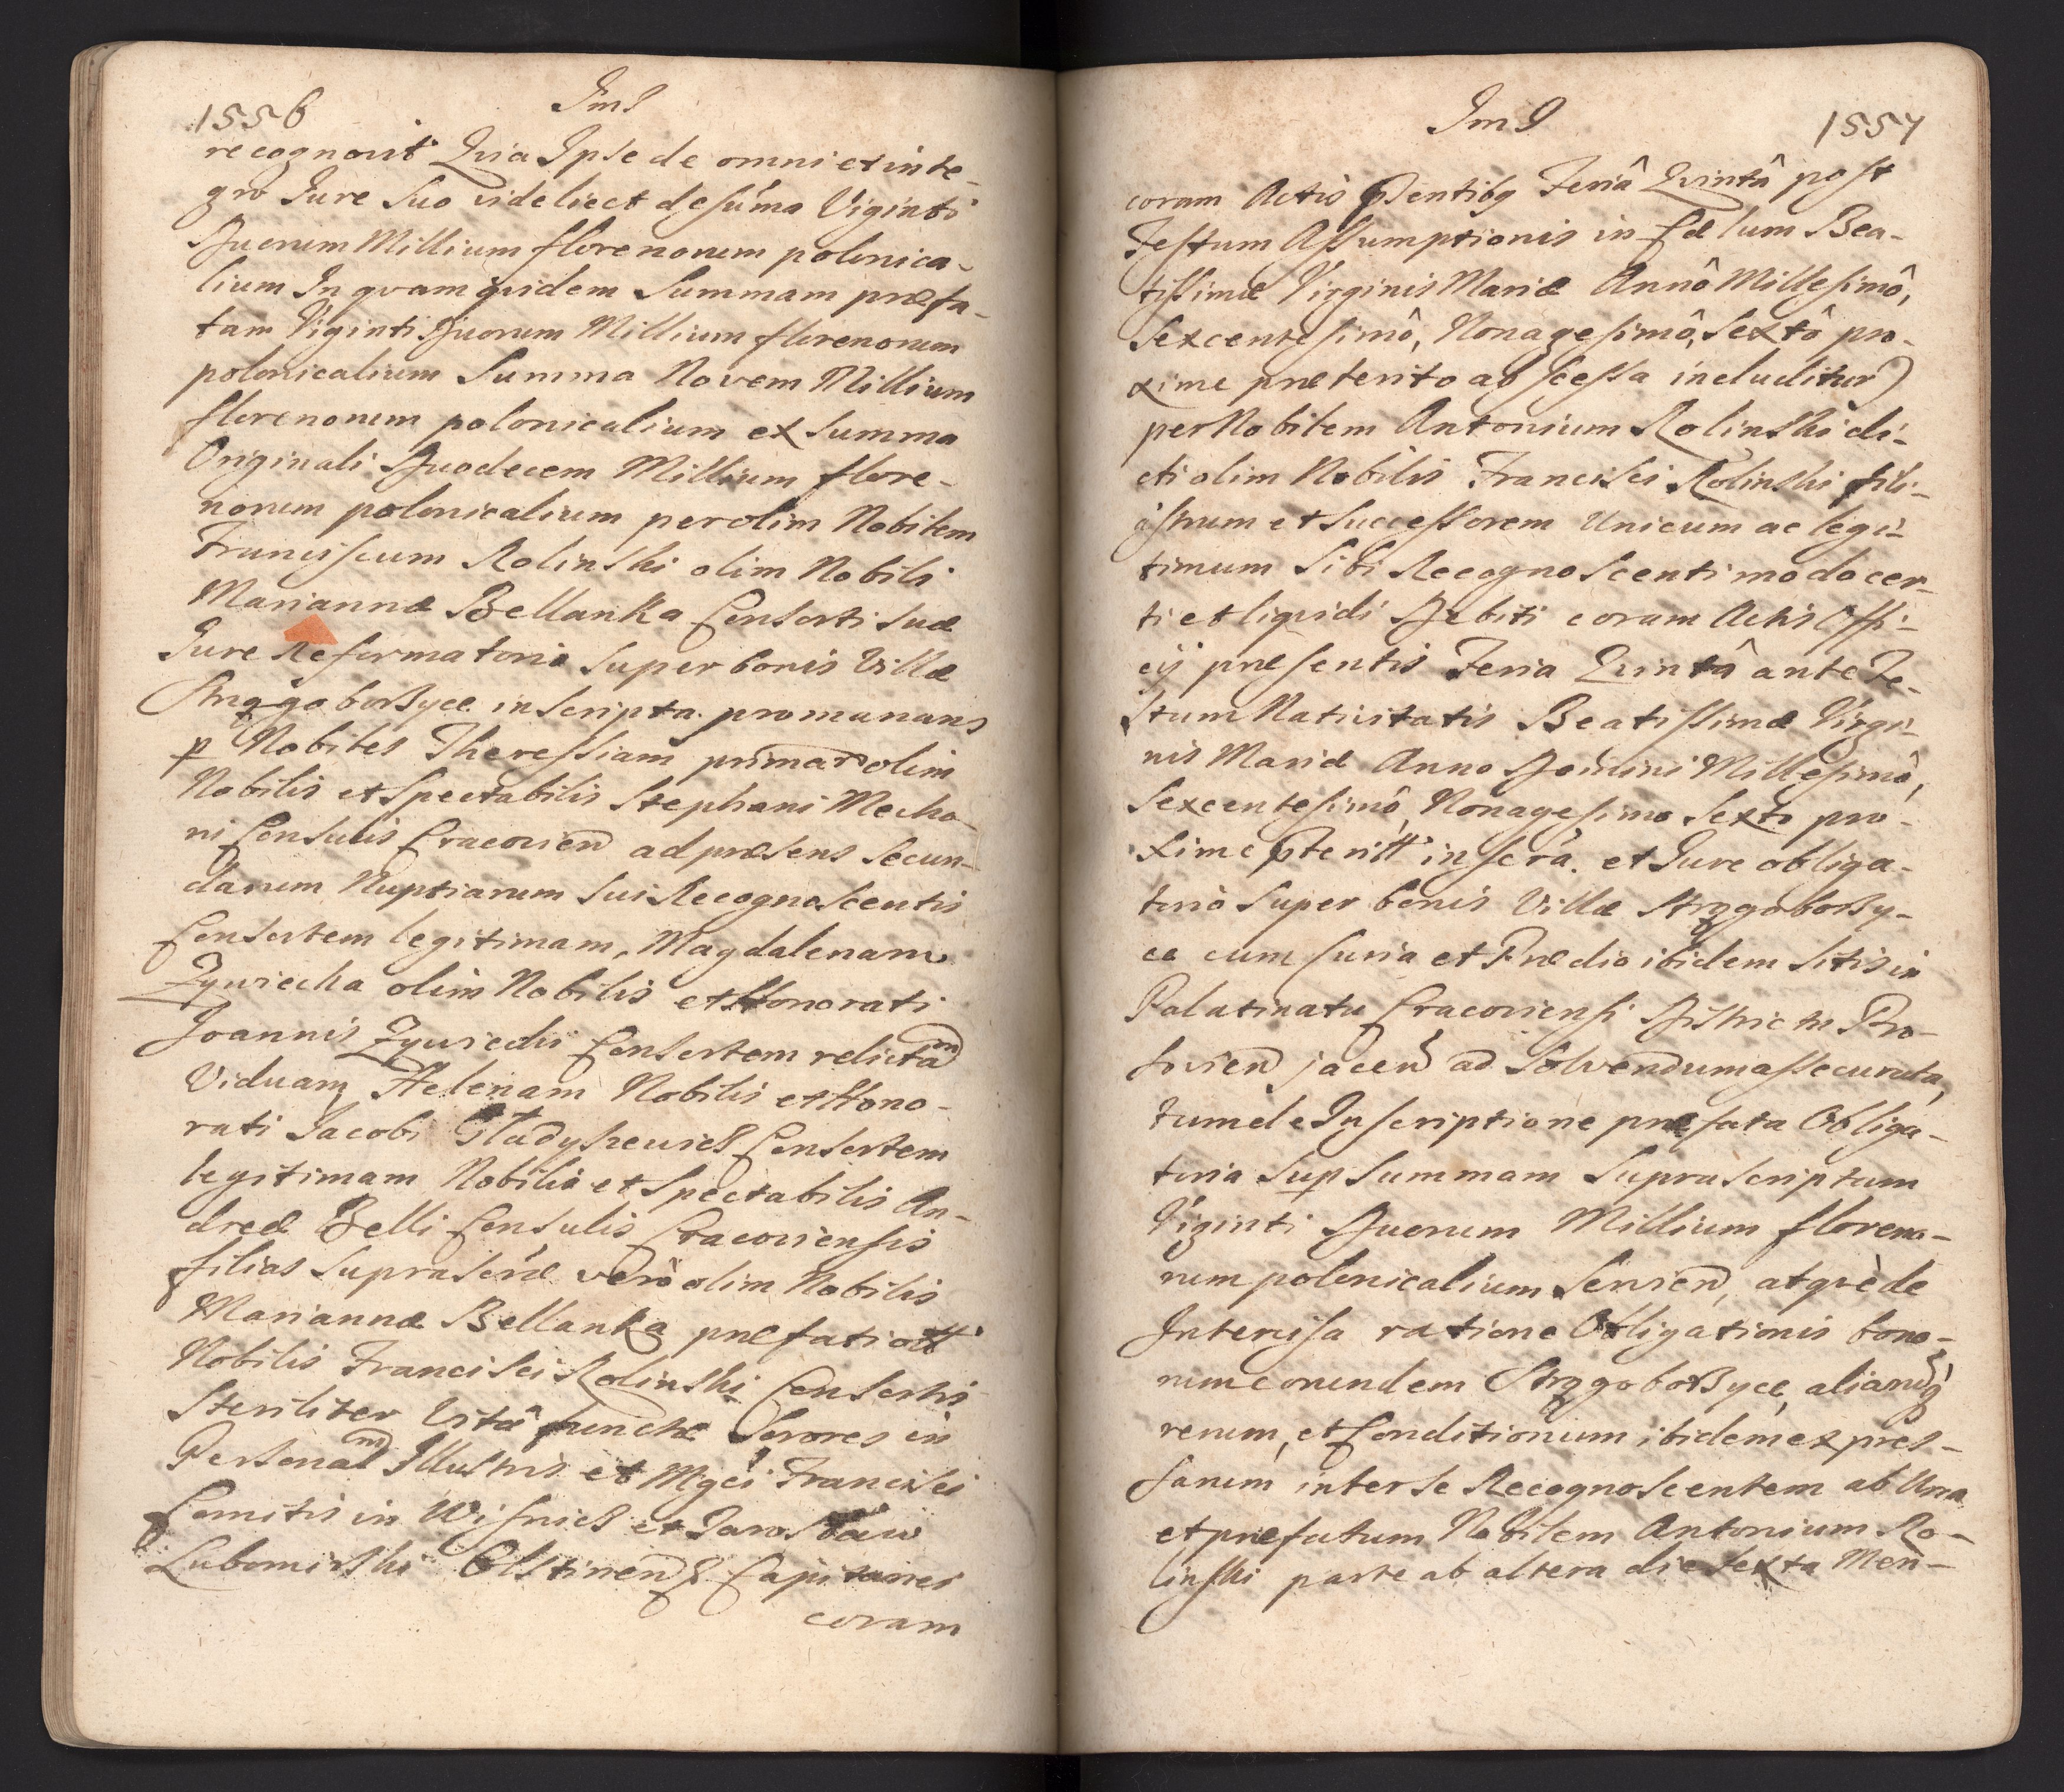 1556
ImS
recognovit Qvia Ipse de omni et inte-
gro Jure suo videlicet de suma Viginti
Duorum Millium florenorum polonica-
lium In qvam qvidem Summam præfa-
tam Viginti Duorum Millium florenorum
polonicalium Summa Novem Millium
florenorum polonicalium ex summa
Originali Duodecem Millium flore-
norum polonicalium per olim Nobilem
Franciscum Rolinski olim Nobili
Mariannæ Bellanka Consorti suæ
Jure Reformatorio super bonis Villæ
Strzgoborzyce inscripta promanans
p Nobiles Theressiam primar olim
Nobilis et Spectabilis Stephani Mecho-
ni Consulis Cracovien ad præsens Secun-
darum Nuptiarum sui Recognoscentis
Consortem legitimam, Magdalenam
Zywiecka olim Nobilis et Honorati
Joannis Zywiecki Consortem relictam
Viduam, Helenam Nobilis et Hono-
rati Jacobi Gladyszewicz Consortem
legitimam Nobilis et Spectabilis An-
dreæ Belli Consulis Cracoviensis
filias supra scræ vero olim Nobilis
Mariannæ Bellanka præfati olt
Nobilis Francisci Rolinski Consortis
steriliter Vitâ functæ Sorores in
Personam Illustris et Mgci Francisci
Comitis in Wisnicz et Jaroslaw
Lubomirski Olstinen & Capitanei
coram
ImS
1557
coram Actis pntibq Feriâ Qvintâ post
Festum Assumptionis in Cælum Bea-
tissimæ Virginis Mariæ Annô Millesimô,
Sexcentesimô, Nonagesimô, Sextô pro-
xime præterito ab scessa includitur)
per Nobilem Antonium Rolinski di-
cti olim Nobilis Francisci Rolinski fili-
astrum et Successorem Unicum ac legi-
timum Sibi Recognoscenti modo cer-
ti et liqvidi Debiti coram Actis Offi-
cij præsentis Feria Qvintâ ante Fe-
stum Nativitatis Beatissimæ Virgi-
nis Mariæ Anno Domini Millesimô,
Sexcentesimô, Nonagesimo Sexto pro-
xime pteritt inscra. et Jure obliga-
torio super bonis Villæ Strzgoborzy-
ce cum Curia et Prædio ibidem sitis in
Palatinatu Cracoviensi Districtu Pro-
sovien jacen ad Solvendum assecurata,
tum de Inscriptione præfata Obliga-
toria Sup Summam Suprascriptam
Viginti Duorum Millium floreno-
rum polonicalium Servien, atqvè de
Intercisa ratione Obligationis bono-
rum eorundem Strzgoborzyce, aliarumq
rerum, et Conditionum ibidem expres-
sarum inter se Recognoscentem ab Una
et præfatum Nobilem Antonium Ro-
linski parte ab altera die sexta Men-